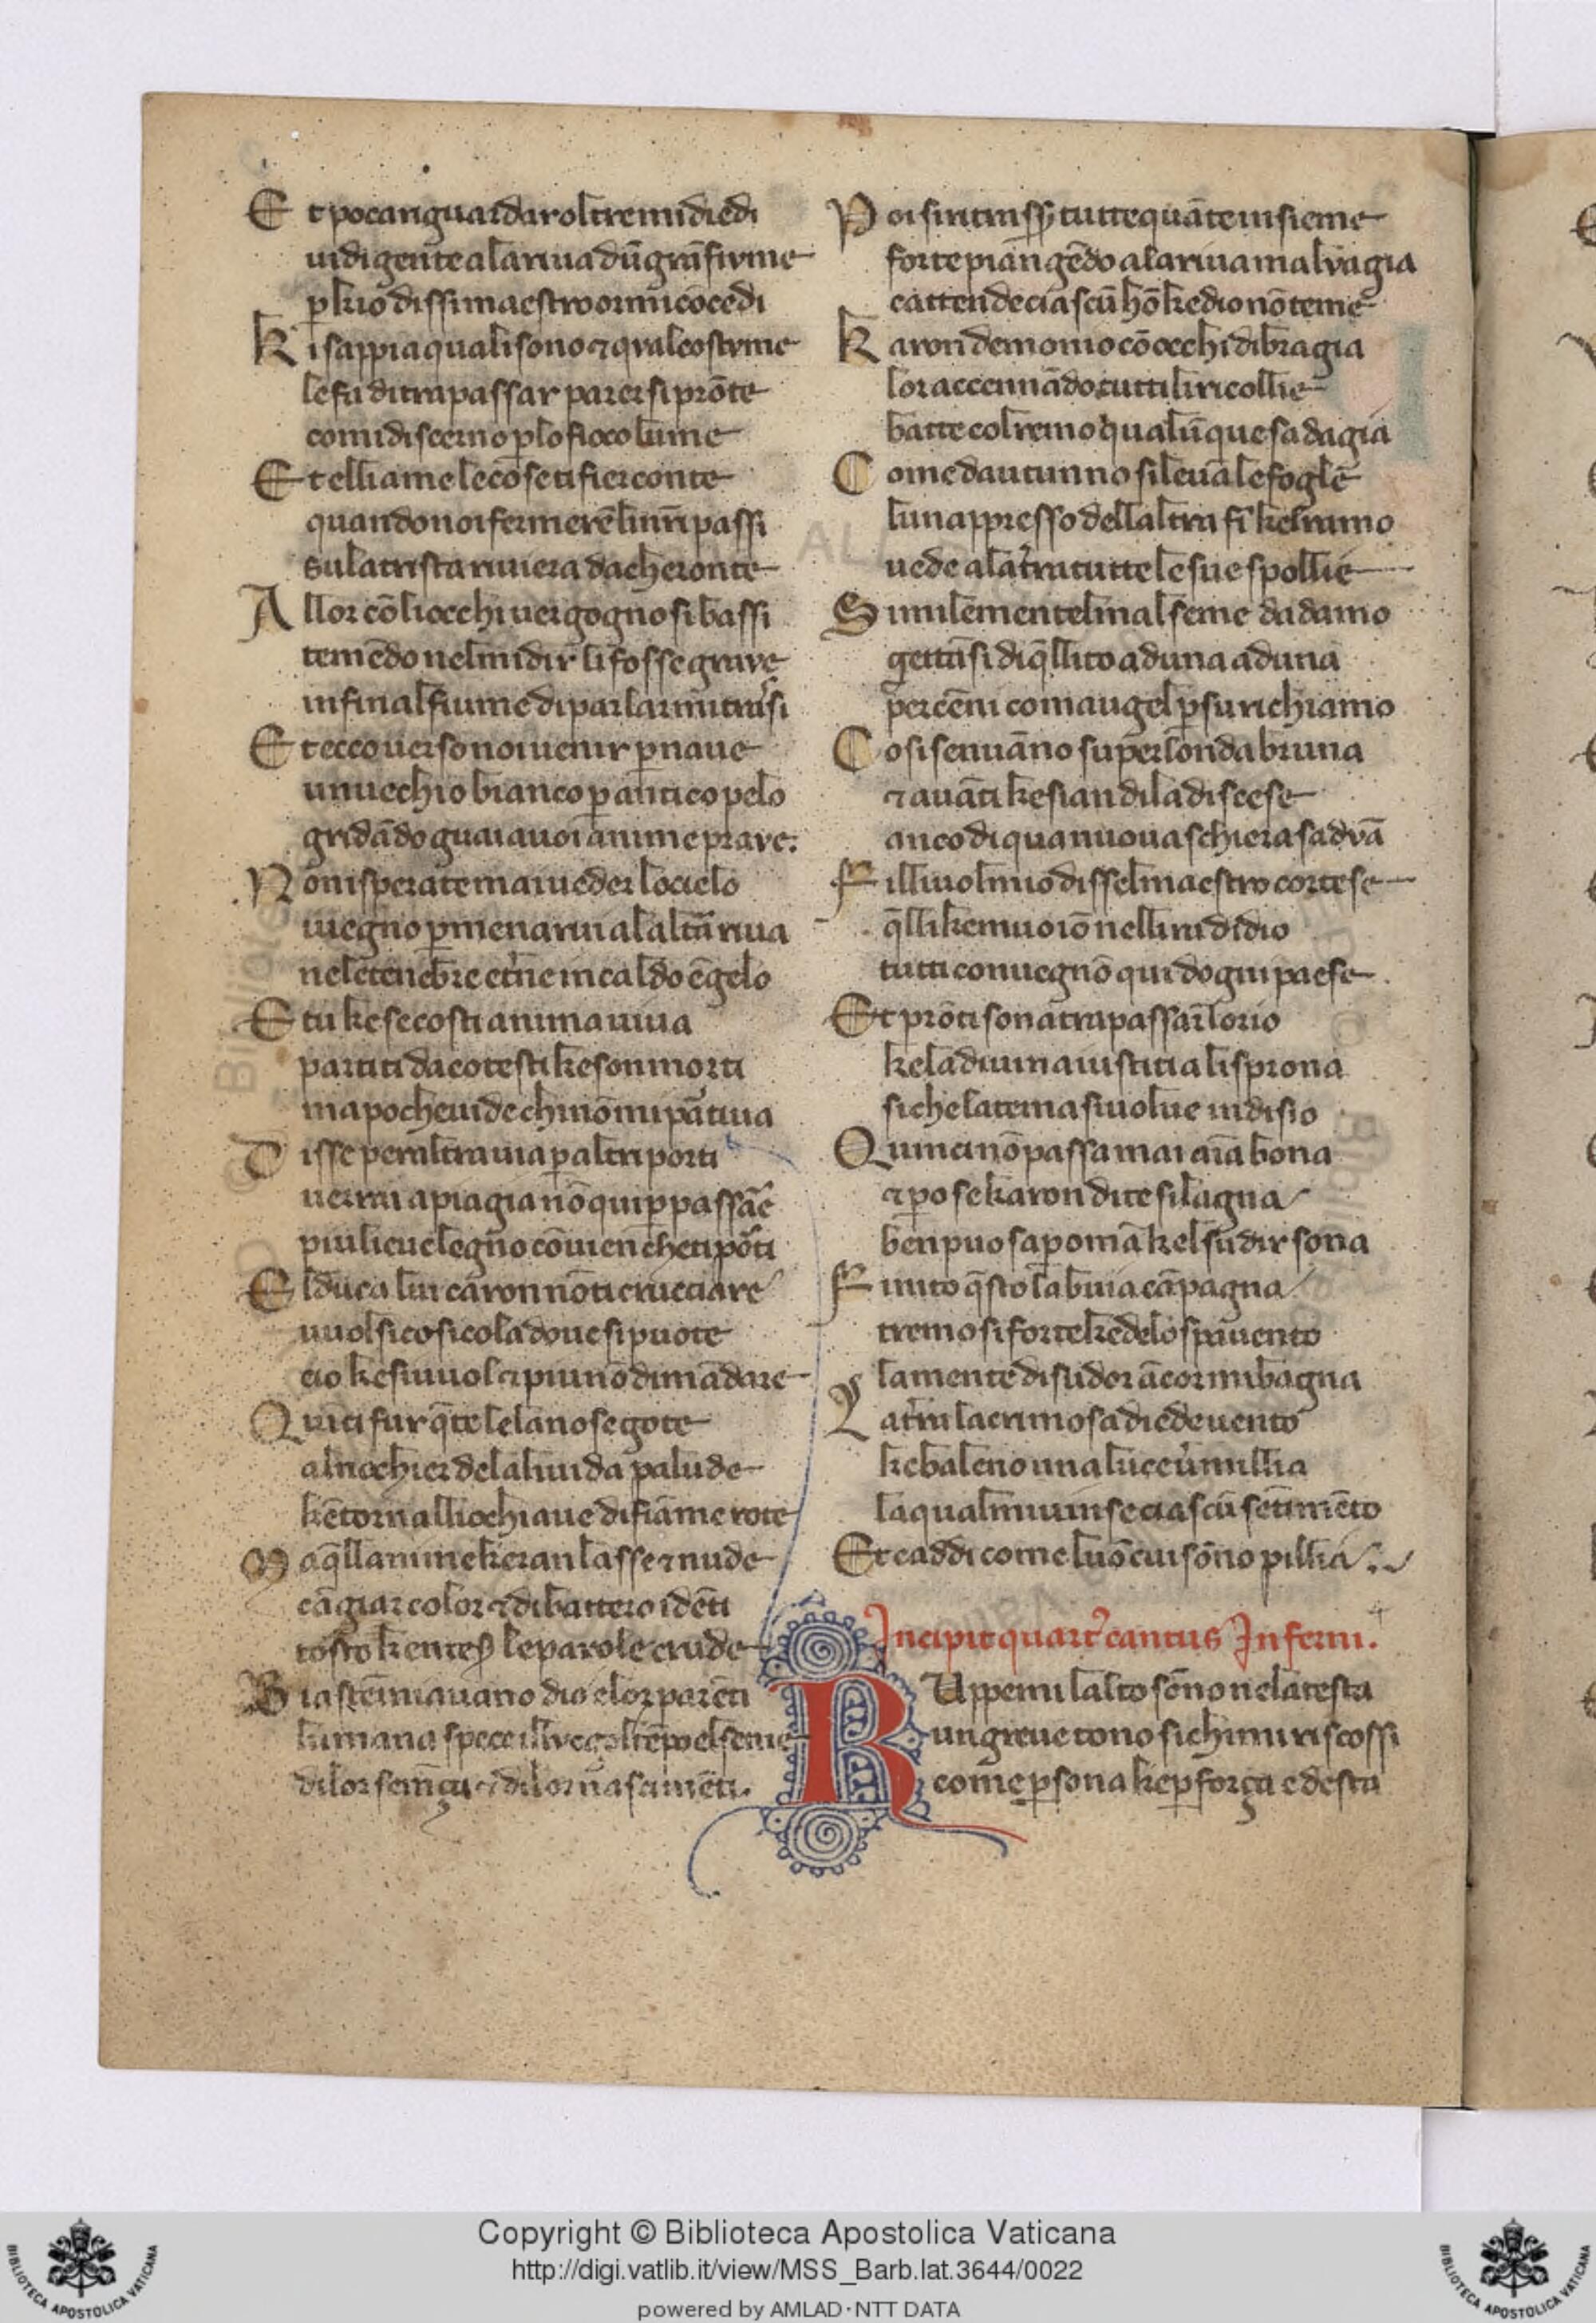 Et poca nguardar oltre mi diedi
uidi gente ala riua dū grā fiume
ꝑkio dissi maestro or mi cōcedi
Ki sappia quali sono ⁊ qval costvme
le fa di trapassar parer si prōte
comi discerno ꝑ lo fioco lume
Et elli ame le cose ti fier conte
quando noi fermerē li nr̄i passi
su la trista riuiera dacheronte
Allor cō li occhi uergognosi bassi
temēdo nel mi dir li fosse grave
infin al fiume di parlar mi trassi
Et ecco uerso noi uenir ꝑ naue
un uechio bianco ꝑ antico pelo
gridādo guai auoi anime prave.
Non isperate mai ueder lo cielo
i uegno ꝑ menarui alaltra riua
ne le tenebre etne in caldo e ngelo
E tu ke se costi anima uiua
partiti da cotesti ke son morti
ma poche uide chi nō mi partiua
Disse per altra uia ꝑ altri porti
uerrai a piagia nō qui ꝑ passare
piu lieue legno cōuien che ti porti
El duca lui caron nō ti crucciare
uuolsi cosi cola doue si puote
cio ke si uuol ⁊ piu nō dimādare
Quiti fur q̄te le lanose gote
al nochier dela liuida palude
kētorn alli ochi aue di fiāme rote
Ma q̄llanime keran lasse ⁊ nude
cāgiar color ⁊ dibattero i dēti
tosto kenteser le parole crude
Biastēmiauano dio elor parēti
lumana spece il luego ltēpo elseme
di lor semēça ⁊ di lor nasimēti.
Poi si ritrasser tutte quāte insieme
forte piangēdo a la riua malvagia
cattende ciascū hō ke dio nō teme
Karon demonio cō occhi di bragia
lor accennādo tutti li ricollie
batte col remo qualūque sadagia
Come dautunno si leuā le foglie
luna appresso dellaltra fī kel ramo
uede ala tra tutte le sue spollie
Similemente lmal seme dadamo
gettāsi di q̄l lito aduna aduna
per cēni com augel ꝑ su richiamo
Cosi senuāno su per londa bruna
⁊ auāti ke sian di la discese
anco di qua nuoua schiera sadvā
Filliuol mio disse lmaestro cortese
q̄lli ke muoiō nell ira di dio
tutti conuegnō qui dogni paese
Et prōti sono a trapassar lo rio
ke la diuina iustitia li sprona
si che la tema si uolue in disio
Quinci nō passa mai aīa bona
⁊ ꝑo se karon di te si lagna
ben puo saper oma kel su dir sona
Finito q̄sto la buia cāpagna
tremo si forte ke delo spauento
la mente di sudor ācor mi bagna
La tra lacrimosa diede uento
ke baleno una luce uermillia
la qual mi uinse ciascū sētimēto
Et caddi come luō cui sōno pillia
Incipit quart' cantus Inferni.
RUppemi lalto sōno nela testa
un greue tono si chi mi riscossi
come ꝑsona ke ꝑ força e desta
Copyright © Biblioteca Apostolica Vaticana
http://digi.vatlib.it/view/MSS_Barb.lat.3644/0022
powered by AMLAD·NTT DATA
BIBLIOTECA APOSTOLICA VATICANA
BIBLIOTECA APOSTOLICA VATICANA